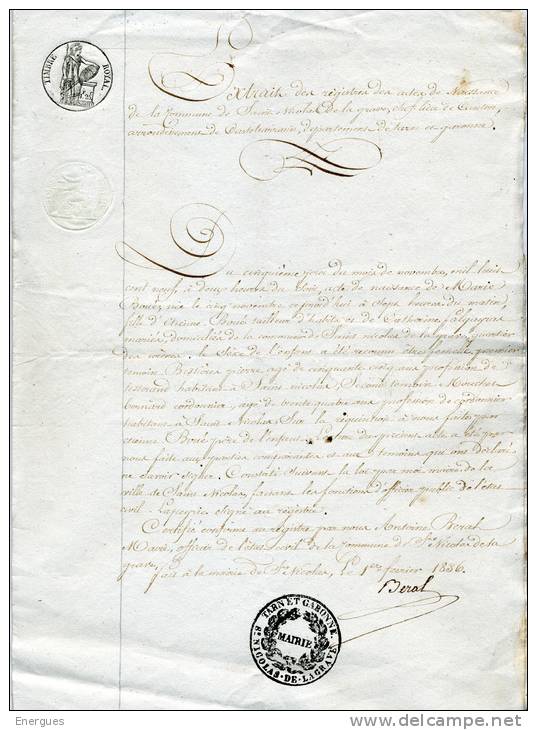 TIMBRE ROYAL
Extrait des registres des actes de Naissance
de la Commune de Saint Nicolas De la grave, chef lieu de Canton,
arrondissement de Castelsarrasin, département de tarn et garonne.
Du cinquième jour du mois de novembre, mil huit
cent neuf, à deux heures du Soir, acte de naissance de Marie
Boué, née le cinq novembre, aujourd'hui à heures du matin
fille d'Etienne Boué tailleur d'habits et de Catherine
mariés, domiciliés de la commune de Saint nicolas de la grave, quartier
du le Sèxe de l'enfant a été reconnu être femelle, premier
temoin pierre, agé de cinquante cinq ans profession de
habitant à Saint nicolas, Second temoin
bernard cordonnier, agé de trente quatre ans profession de cordonnier
habitant à Saint Nicolas, Sur la réquisition à nous faite par
etienne Boué père de l'enfant. Lecture du présent acte a été par
nous faite aux parties comparantes et aux temoins qui ont déclaré
ne savoir signer. Constaté suivant la loi par moi maire de la
ville de Saint Nicolas, faisant les fonctions d'officier public de l'état
civil. signé au registre.
Certifié conforme au registre par nous Antoine Beral
Maire, officier de l'état civil de la Commune de St Nicolas de la
grave,
fait à la mairie de St Nicolas, Le 1er fevrier 1836.
Beral
TARN ET GARONNE
MAIRIE
St NICOLAS-DE-LAGRAVE
Energues
www.delcampe.net